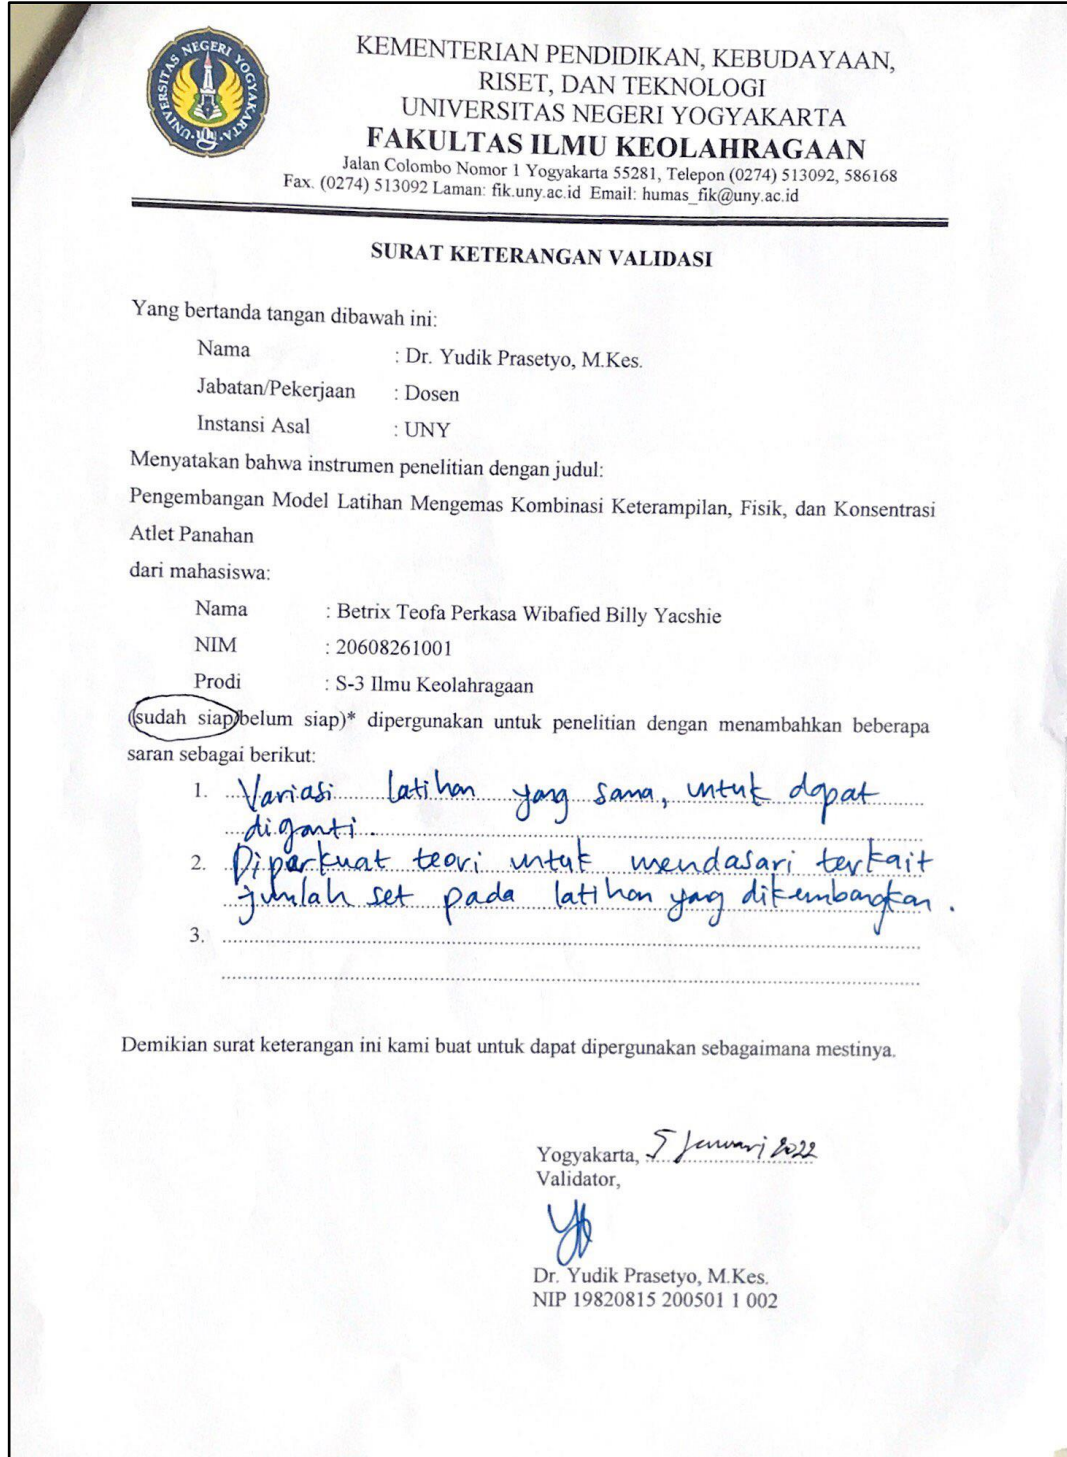 UNIVERSITAS NEGERI YOGYAKARTA
UNY
KEMENTERIAN PENDIDIKAN, KEBUDAYAAN,
RISET, DAN TEKNOLOGI
UNIVERSITAS NEGERI YOGYAKARTA
FAKULTAS ILMU KEOLAHRAGAAN
Jalan Colombo Nomor 1 Yogyakarta 55281, Telepon (0274) 513092, 586168
Fax. (0274) 513092 Laman: fik.uny.ac.id Email: humas_fik@uny.ac.id
SURAT KETERANGAN VALIDASI
Yang bertanda tangan dibawah ini:
Nama : Dr. Yudik Prasetyo, M.Kes.
Jabatan/Pekerjaan : Dosen
Instansi Asal : UNY
Menyatakan bahwa instrumen penelitian dengan judul:
Pengembangan Model Latihan Mengemas Kombinasi Keterampilan, Fisik, dan Konsentrasi
Atlet Panahan
dari mahasiswa:
Nama : Betrix Teofa Perkasa Wibafied Billy Yacshie
NIM : 20608261001
Prodi : S-3 Ilmu Keolahragaan
(sudah siap/belum siap)* dipergunakan untuk penelitian dengan menambahkan beberapa
saran sebagai berikut:
1. Variasi latihan yang sama, untuk dapat
diganti.
2. Diperkuat teori untuk mendasari terkait
jumlah set pada latihan yag dikembangkan.
3.
Demikian surat keterangan ini kami buat untuk dapat dipergunakan sebagaimana mestinya.
Yogyakarta, 5 Januari 2022
Validator,
Dr. Yudik Prasetyo, M.Kes.
NIP 19820815 200501 1 002